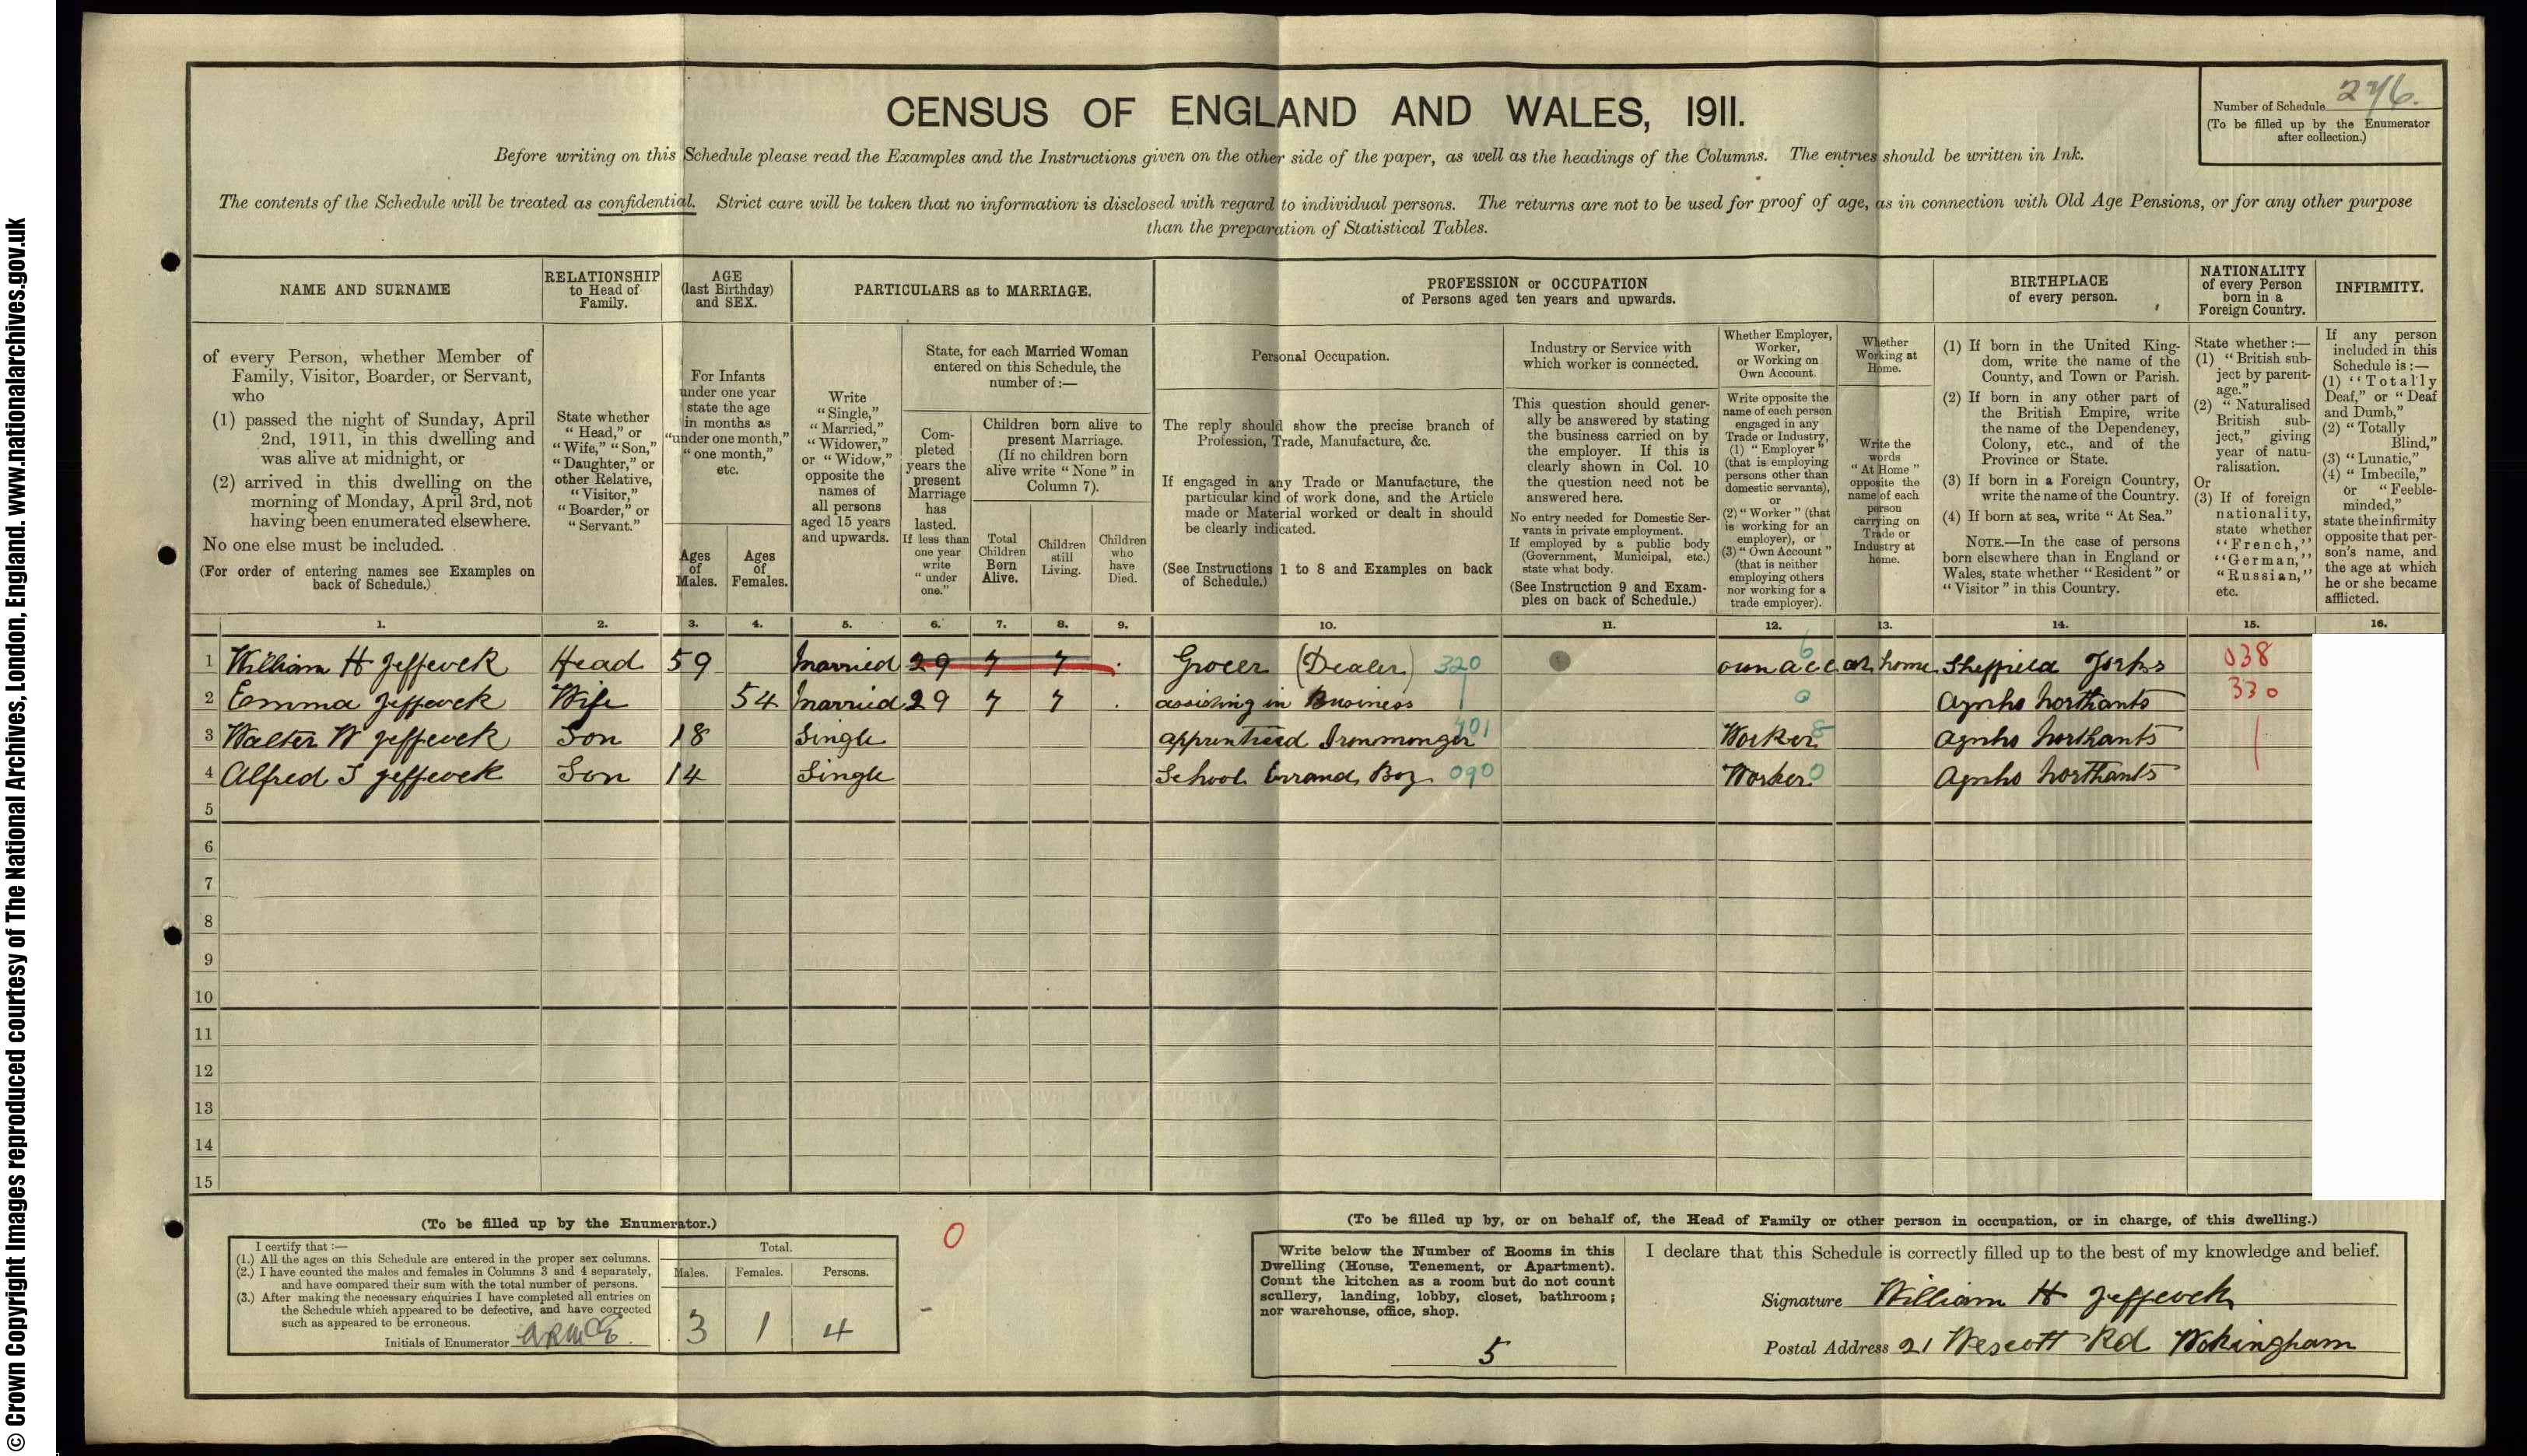 CENSUS OF ENGLAND AND WALES, 1911.
Number of Schedule 276.
(To be filled up by the Enumerator
after collection.)
Before writing on this Schedule please read the Examples and the Instructions given on the other side of the paper, as well as the headings of the Columns. The entries should be written in Ink.
The contents of the Schedule will be treated as confidential. Strict care will be taken that no information is disclosed with regard to individual persons. The returns are not to be used for proof of age, as in connection with Old Age Pensions, or for any other purpose
than the preparation of Statistical Tables.
NAME AND SURNAME
of every Person, whether Member of
Family, Visitor, Boarder, or Servant,
who
(1) passed the night of Sunday, April
2nd, 1911, in this dwelling and
was alive at midnight, or
(2) arrived in this dwelling on the
morning of Monday, April 3rd, not
having been enumerated elsewhere.
No one else must be included.
(For order of entering names see Examples on
back of Schedule.)
RELATIONSHIP
to Head of
Family.
State whether
"Head," or
"Wife," "Son,"
"Daughter," or
other Relative,
"Visitor,"
"Boarder," or
"Servant."
AGE
(last Birthday)
and SEX.
For Infants
under one year
state the age
in months as
"under one month,"
"one month,"
etc.
Ages
of
Males.
Ages
of
Females.
PARTICULARS as to MARRIAGE.
Write
"Single,"
"Married,"
"Widower,"
or "Widow,"
opposite the
names of
all persons
aged 15 years
and upwards.
State, for each Married Woman
entered on this Schedule, the
number of:—
Com-
pleted
years the
present
Marriage
has
lasted.
If less than
one year
write
"under
one."
Children born alive to
present Marriage.
(If no children born
alive write "None" in
Column 7).
Total
Children
Born
Alive.
Children
still
Living.
Children
who
have
Died.
PROFESSION or OCCUPATION
of Persons aged ten years and upwards.
Personal Occupation.
The reply should show the precise branch of
Profession, Trade, Manufacture, &c.
If engaged in any Trade or Manufacture, the
particular kind of work done, and the Article
made or Material worked or dealt in should
be clearly indicated.
(See Instructions 1 to 8 and Examples on back
of Schedule.)
Industry or Service with
which worker is connected.
This question should gener-
ally be answered by stating
the business carried on by
the employer. If this is
clearly shown in Col. 10
the question need not be
answered here.
No entry needed for Domestic Ser-
vants in private employment.
If employed by a public body
(Government, Municipal, etc.)
state what body.
(See Instruction 9 and Exam-
ples on back of Schedule.)
Whether Employer,
Worker,
or Working on
Own Account.
Write opposite the
name of each person
engaged in any
Trade or Industry,
(1) "Employer"
(that is employing
persons other than
domestic servants),
or
(2) "Worker" (that
is working for an
employer), or
(3) "Own Account"
(that is neither
employing others
nor working for a
trade employer).
Whether
Working at
Home.
Write the
words
"At Home"
opposite the
name of each
person
carrying on
Trade or
Industry at
home.
BIRTHPLACE
of every person.
(1) If born in the United King-
dom, write the name of the
County, and Town or Parish.
(2) If born in any other part of
the British Empire, write
the name of the Dependency,
Colony, etc., and of the
Province or State.
(3) If born in a Foreign Country,
write the name of the Country.
(4) If born at sea, write "At Sea."
NOTE.—In the case of persons
born elsewhere than in England or
Wales, state whether "Resident" or
"Visitor" in this Country.
NATIONALITY
of every Person
born in a
Foreign Country.
State whether:—
(1) "British sub-
ject by parent-
age."
(2) "Naturalised
British sub-
ject," giving
year of natu-
ralisation.
Or
(3) If of foreign
nationality,
state whether
"French,"
"German,"
"Russian,"
etc.
INFIRMITY.
If any person
included in this
Schedule is:—
(1) "Totally
Deaf," or "Deaf
and Dumb,"
(2) "Totally
Blind,"
(3) "Lunatic,"
(4) "Imbecile,"
or "Feeble-
minded,"
state the infirmity
opposite that per-
son's name, and
the age at which
he or she became
afflicted.
1. 2. 3. 4. 5. 6. 7. 8. 9. 10. 11. 12. 13. 14. 15. 16.
1 William H Jeffcock Head 59 Married 29 7 7 Grocer (Dealer) 320 own acc 6 at home Sheffield Yorks 038
2 Emma Jeffcock Wife 54 Married 29 7 7 assisting in Business 0 Aynho Northants 330
3 Walter W Jeffcock Son 18 Single apprenticed Ironmonger 401 Worker 8 Aynho Northants
4 Alfred J Jeffcock Son 14 Single School Errand Boy 090 Worker 0 Aynho Northants
5
6
7
8
9
10
11
12
13
14
15
(To be filled up by the Enumerator.)
I certify that:—
(1.) All the ages on this Schedule are entered in the proper sex columns.
(2.) I have counted the males and females in Columns 3 and 4 separately,
and have compared their sum with the total number of persons.
(3.) After making the necessary enquiries I have completed all entries on
the Schedule which appeared to be defective, and have corrected
such as appeared to be erroneous.
Initials of Enumerator
Total.
Males. Females. Persons.
3 1 4
0
(To be filled up by, or on behalf of, the Head of Family or other person in occupation, or in charge, of this dwelling.)
Write below the Number of Rooms in this
Dwelling (House, Tenement, or Apartment).
Count the kitchen as a room but do not count
scullery, landing, lobby, closet, bathroom;
nor warehouse, office, shop.
5
I declare that this Schedule is correctly filled up to the best of my knowledge and belief.
Signature William H Jeffcock
Postal Address 21 Wescott Rd Wokingham
© Crown Copyright Images reproduced courtesy of The National Archives, London, England. www.nationalarchives.gov.uk